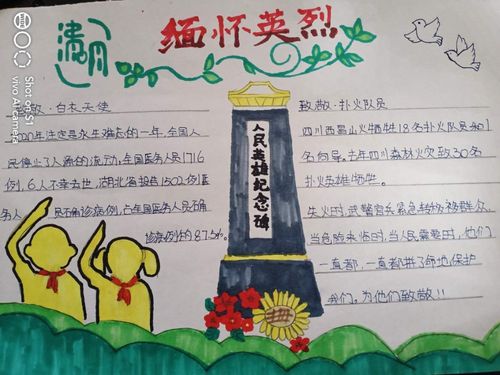 清明
缅怀英烈
致敬·白衣天使
2020年注定是永生难忘的一年，全国人
民停止了人员的流动，全国医务人员1716
例，6人不幸去世，湖北省报告1502例医
务人
员不确诊病例，占全国医务人员不确
诊病例的87.5%。
人民英雄纪念碑
致敬·扑火队员
四川西昌山火牺牲18名扑火队员和1
名向导。去年四川森林火灾致30名
扑火英雄牺牲。
失火时，武警官兵紧急转移被群众，
当危险来临时，当人民需要时，他们
一直都，一直都拼了命地保护
我们。为他们致敬！！
Shot on S1
vivo AI camera